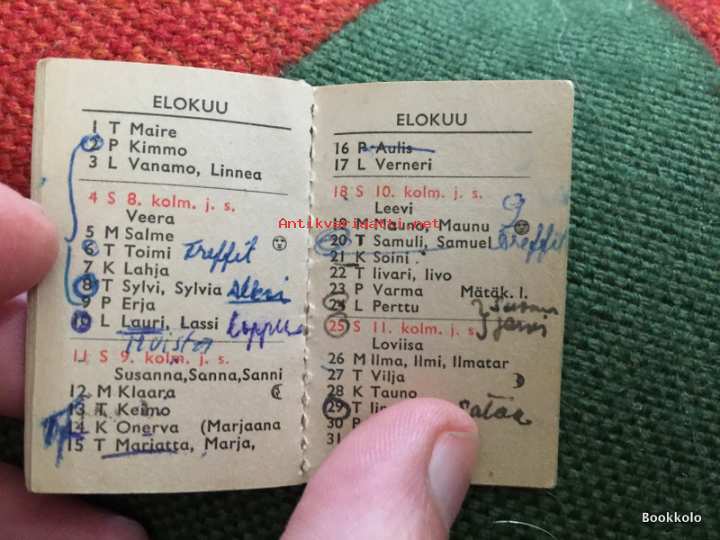 ELOKUU
1 T Maire
2 P Kimmo
3 L Vanamo, Linnea
4 S 8. kolm. j. s.
Veera
5 M Salme
6 T Toimi Treffit
7 K Lahja
8 T Sylvi, Sylvia
9 P Erja
10 L Lauri, Lassi
11 S 9. kolm. j. s.
Susanna, Sanna, Sanni
12 M Klaara
13 T Keimo
14 K Onerva (Marjaana
15 T Mariatta, Marja,
ELOKUU
16 P Aulis
17 L Verneri
18 S 10. kolm. j. s.
Leevi
19 M Mauno, Maunu
20 T Samuli, Samuel Treffit
21 K Soini
22 T Iivari, Iivo
23 P Varma Mätäk. l.
24 L Perttu
25 S 11. kolm. j. s.
Loviisa
26 M Ilma, Ilmi, Ilmatar
27 T Vilja
28 K Tauno
29 T
30 P
31
Antikvariaatti.net
Bookkolo